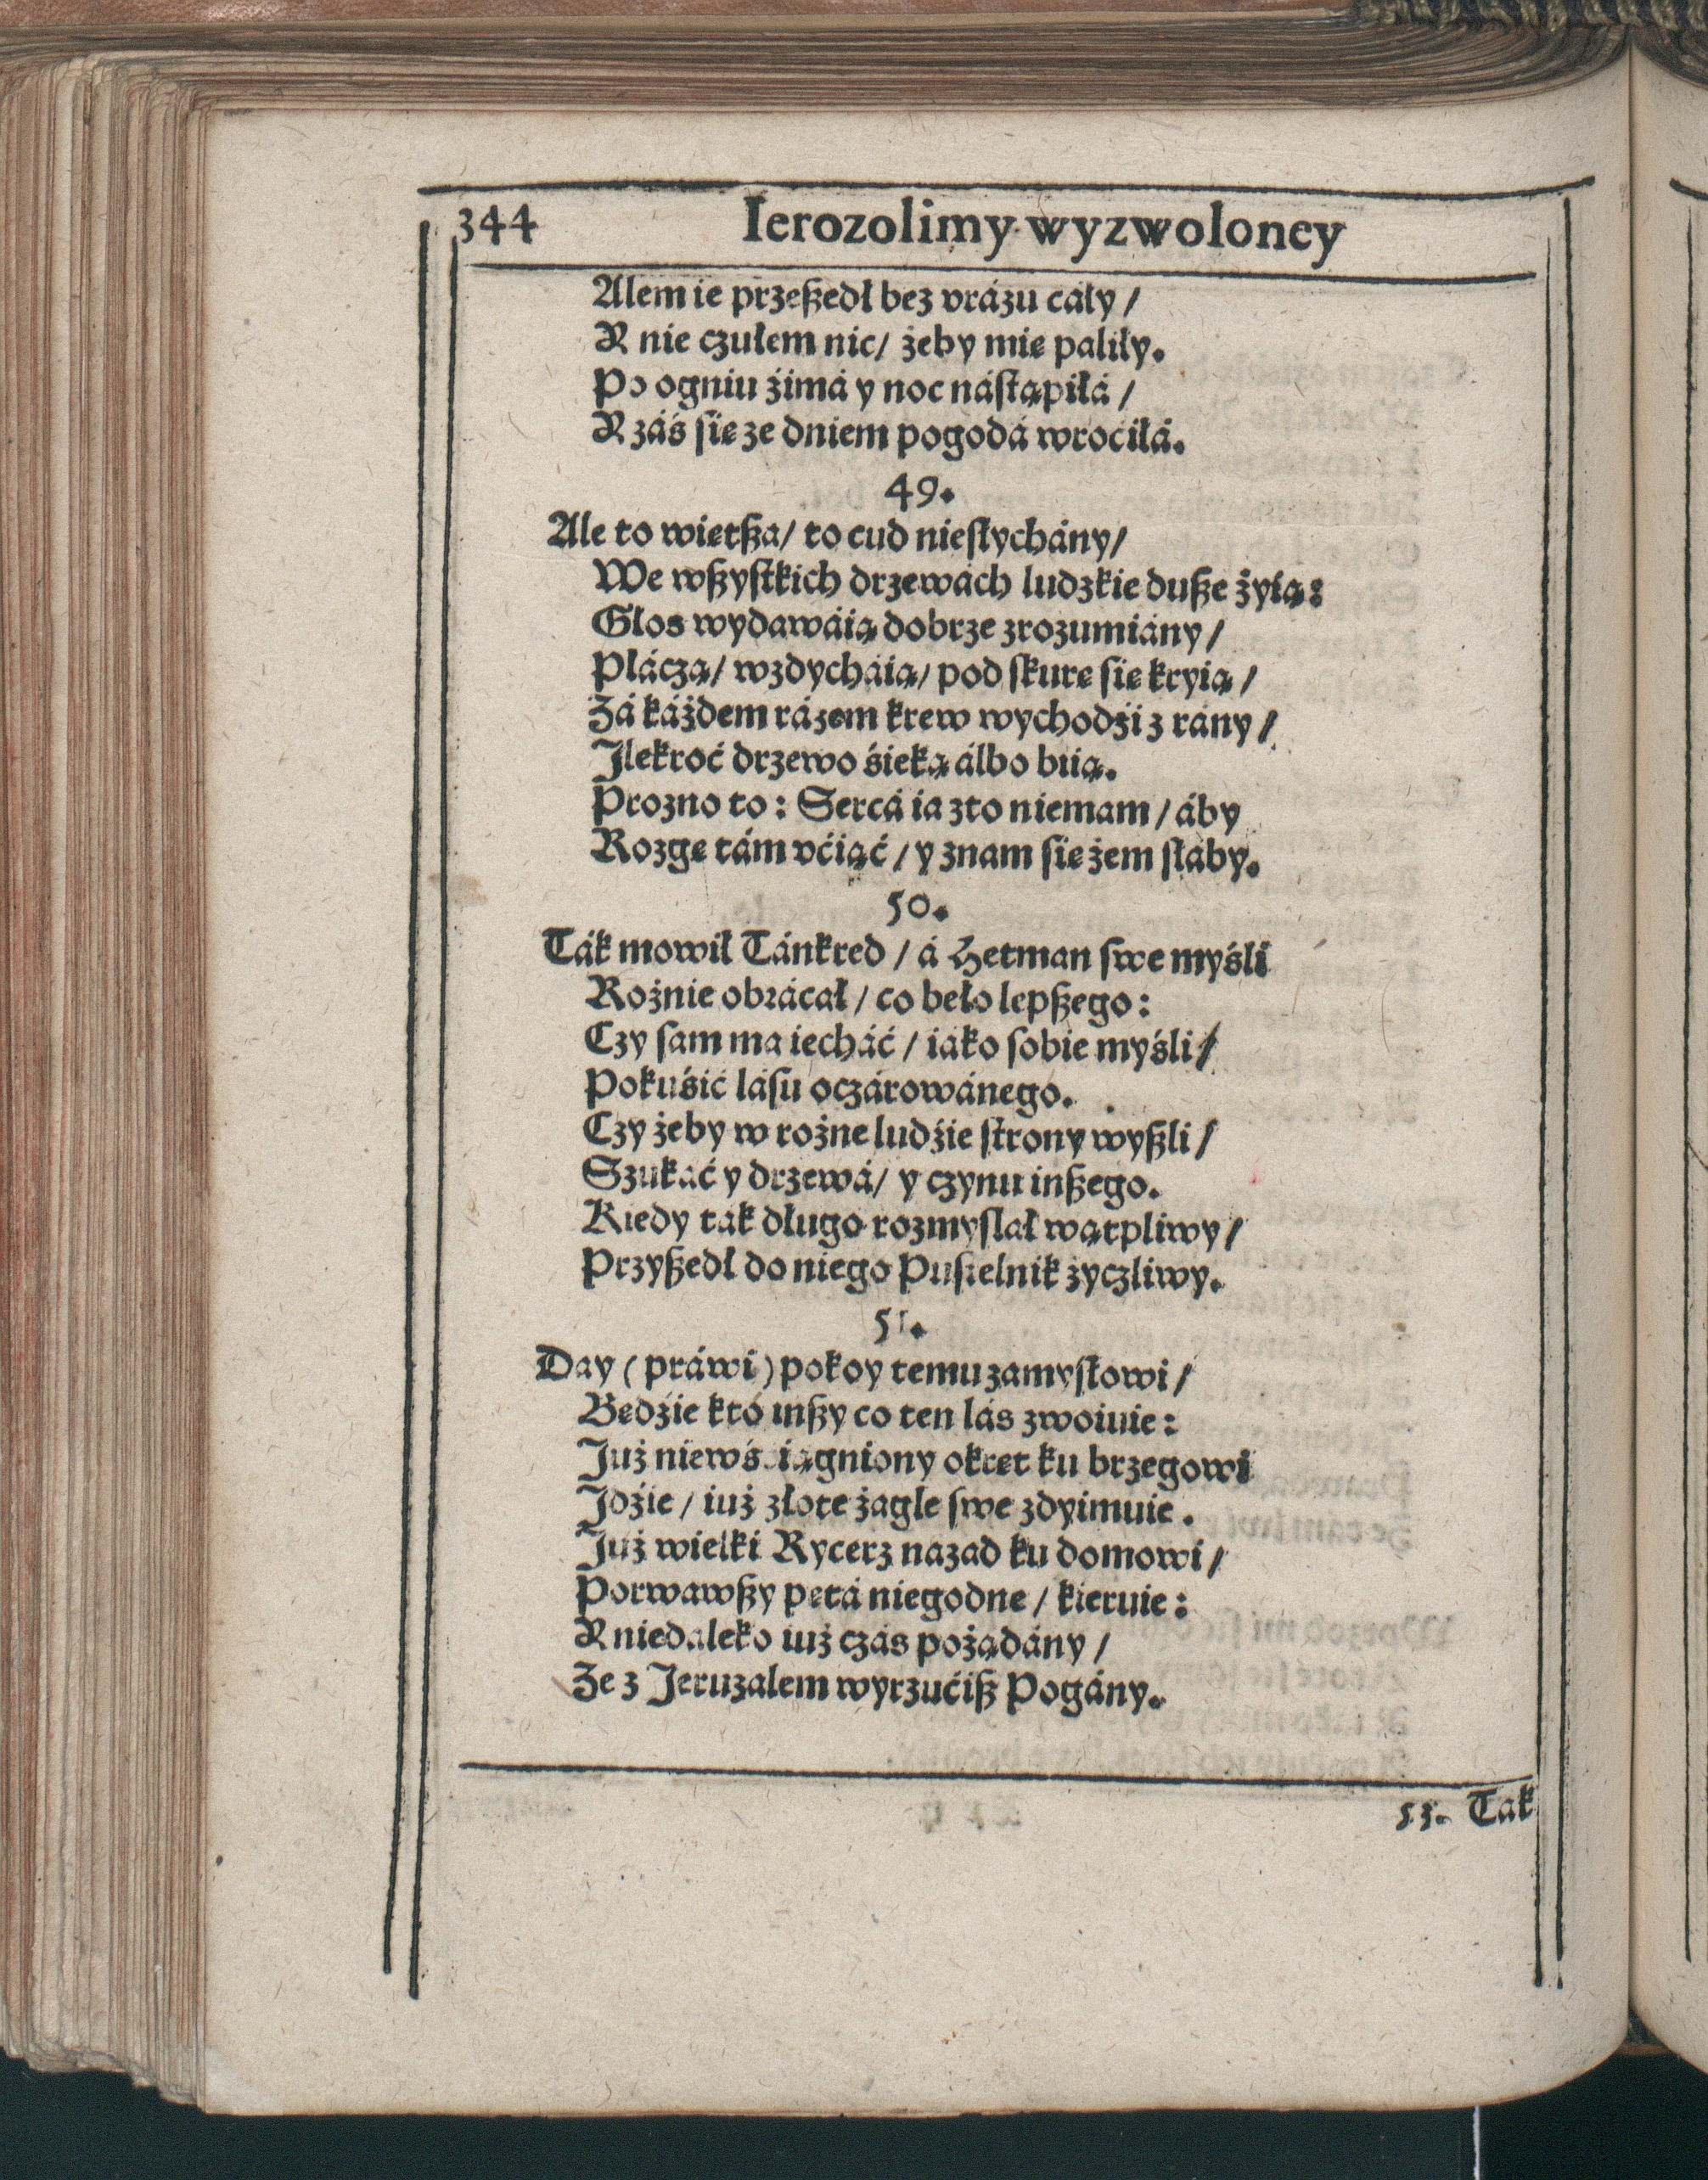 344 Ierozolimy wyzwoloney
Alem ie przeßedł bez vrázu cáły /
R nie czułem nic / żeby mię paliły.
Po ogniu źimá y noc nástąpiłá /
R záś się ze dniem pogodá wrociłá.
49.
Ale to więtßa / to cud niesłychány /
We wßystkich drzewách ludzkie duße żyią:
Głos wydawáią dobrze zrozumiány /
Płáczą / wzdycháią / pod skurę się kryią /
Zá káżdem rázem krew wychodźi z rány /
Jlekroć drzewo śieką álbo biią.
Prozno to: Sercá ia zto niemam / áby
Rozgę tám vćiąć / y znam się żem słáby.
50.
Ták mowił Tánkred / á Hetman swe myśli
Rożnie obrácał / co beło lepßego:
Czy sam ma iecháć / iáko sobie myśli /
Pokuśić lásu oczárowánego.
Czy żeby w rożne ludźie strony wyßli /
Szukáć y drzewá / y czynu inßego.
Kiedy ták długo rozmyślał wątpliwy /
Przyßedł do niego Pustelnik życzliwy.
51.
Day (práwi) pokoy temu zamysłowi /
Będźie kto inßy co ten lás zwoiuie:
Już niewśćiągniony okręt ku brzegowi
Jdźie / iuż złote żagle swe zdyimuie.
Już wielki Rycerz nazad ku domowi /
Porwawßy pętá niegodne / kieruie:
R niedaleko iuż czás pożądány /
Że z Jeruzalem wyrzućiß Pogány.
53. Tak